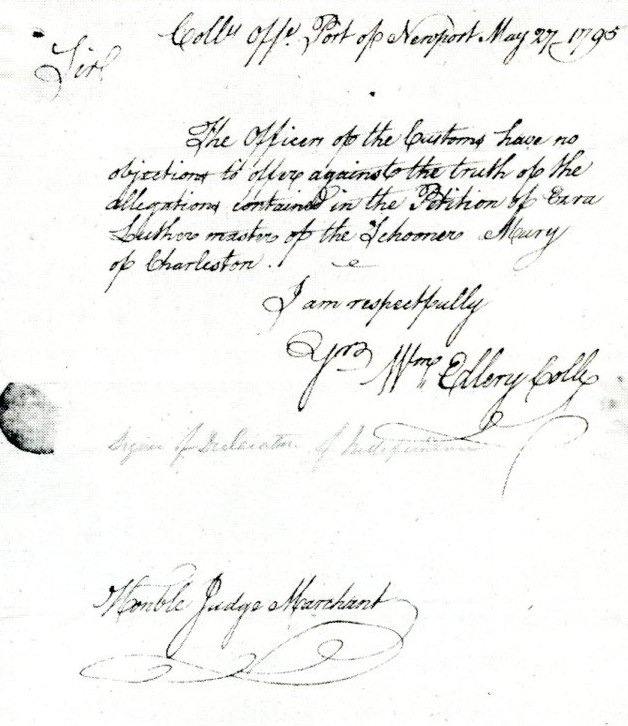 Coll.ʳˢ Off.ᵉ Port of Newport May 27 1795
Sir
The Officers of the Customs have no
objections to offer against the truth of the
allegations contained in the Petition of Ezra
Luther master of the Schooner Mary
of Charleston.
I am respectfully
Yrs Wm Ellery Collr
Signer of Declaration of Independence
Honble Judge Marchant